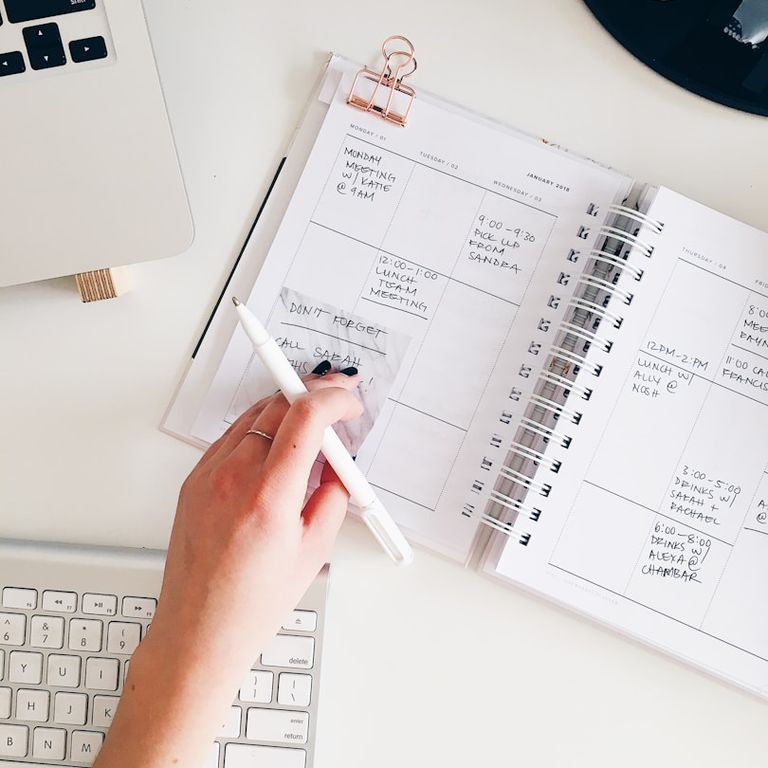 MONDAY / 01
TUESDAY / 02
JANUARY 2018
WEDNESDAY / 03
MONDAY
MEETING
W/ KATIE
@ 9AM
9:00-9:30
PICK UP
FROM
SANDRA
12:00-1:00
LUNCH
TEAM
MEETING
DON'T FORGET
CALL SARAH
THURSDAY / 04
12PM-2:PM
LUNCH W/
ALLY @
NOSH
8:0
MEE
11:00 CAL
FRANCIS
3:00-5:00
DRINKS W/
SARAH +
RACHAEL
6:00-8:00
DRINKS W/
ALEXA @
CHAMBAR
6
&
7
*
8
(
9
delete
Y
U
I
H
J
K
enter
return
B
N
M